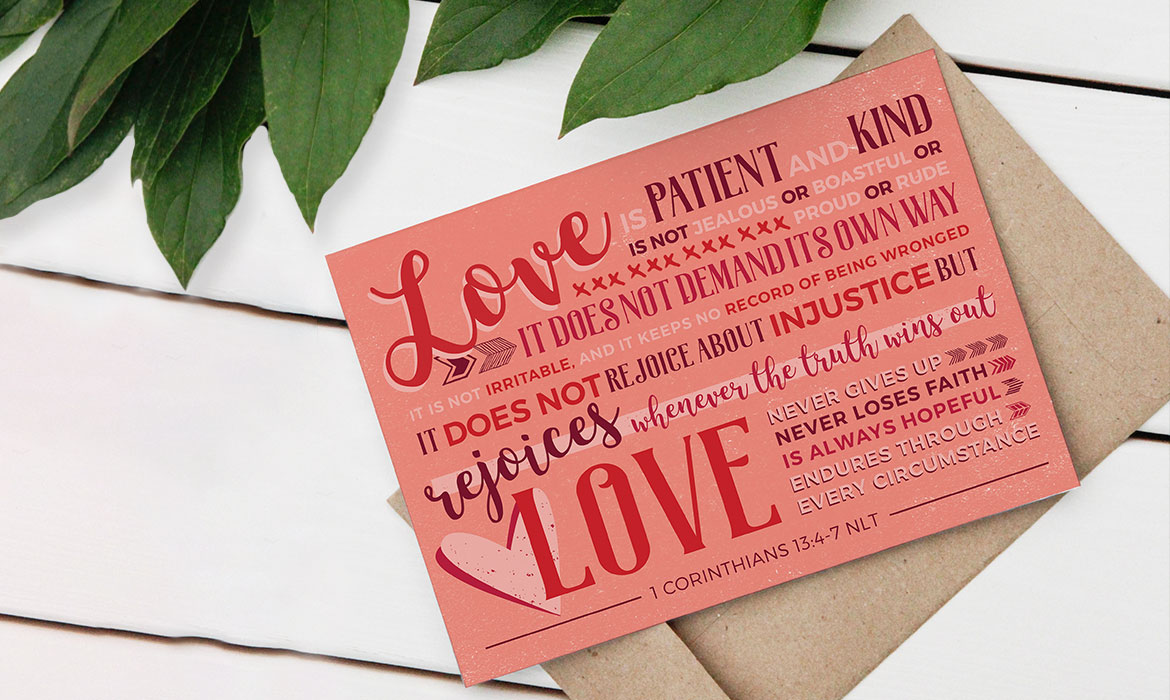 Love IS PATIENT AND KIND
IS NOT JEALOUS OR BOASTFUL OR
PROUD OR RUDE
IT DOES NOT DEMAND ITS OWN WAY
IT IS NOT IRRITABLE, AND IT KEEPS NO RECORD OF BEING WRONGED
IT DOES NOT REJOICE ABOUT INJUSTICE BUT
rejoices whenever the truth wins out
LOVE
NEVER GIVES UP
NEVER LOSES FAITH
IS ALWAYS HOPEFUL
ENDURES THROUGH
EVERY CIRCUMSTANCE
1 CORINTHIANS 13:4-7 NLT